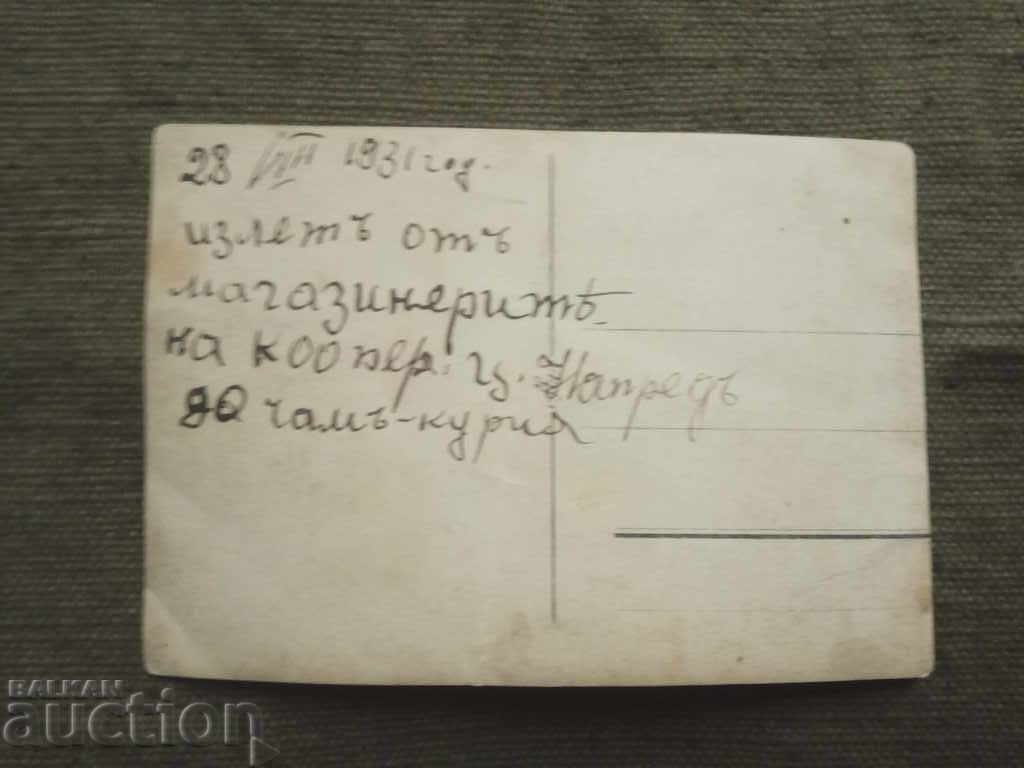 28 VII 1931 год.
излетъ отъ
магазинеритѣ
на коопер. ц. Напредъ
до чамъ-курия
BALKAN
auction